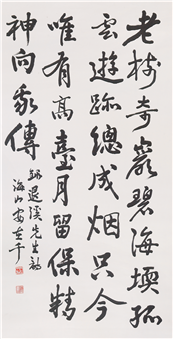 老樹奇巖碧海堧孤
雲遊跡總成烟只今
唯有高臺月留保精
神向我傳
錄退溪先生韵
海山 在千